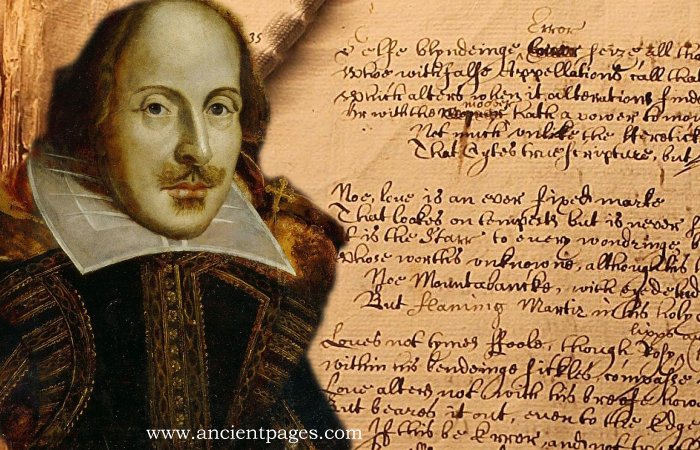 35
Error
selfe blyndeinge seize all
Whoe with false Appellations call that
Which alters when it alterations
Or with the hath a power to
Not much unlike the
That Cytes true scripture, but
Noe, love is an ever fixed marke
That lookes on tempests but is never
is the Starr to every wondringe
Whose worths unknowne, although his
Noe Mountabancke, with
But flaming Martir in his holy
lipps
Loves not tymes foole, though Rosy
within his bendeinge sickles compasse
Love alters not with his breefe
But beares it out, even to the Edge
If this be Error, and not
www.ancientpages.com